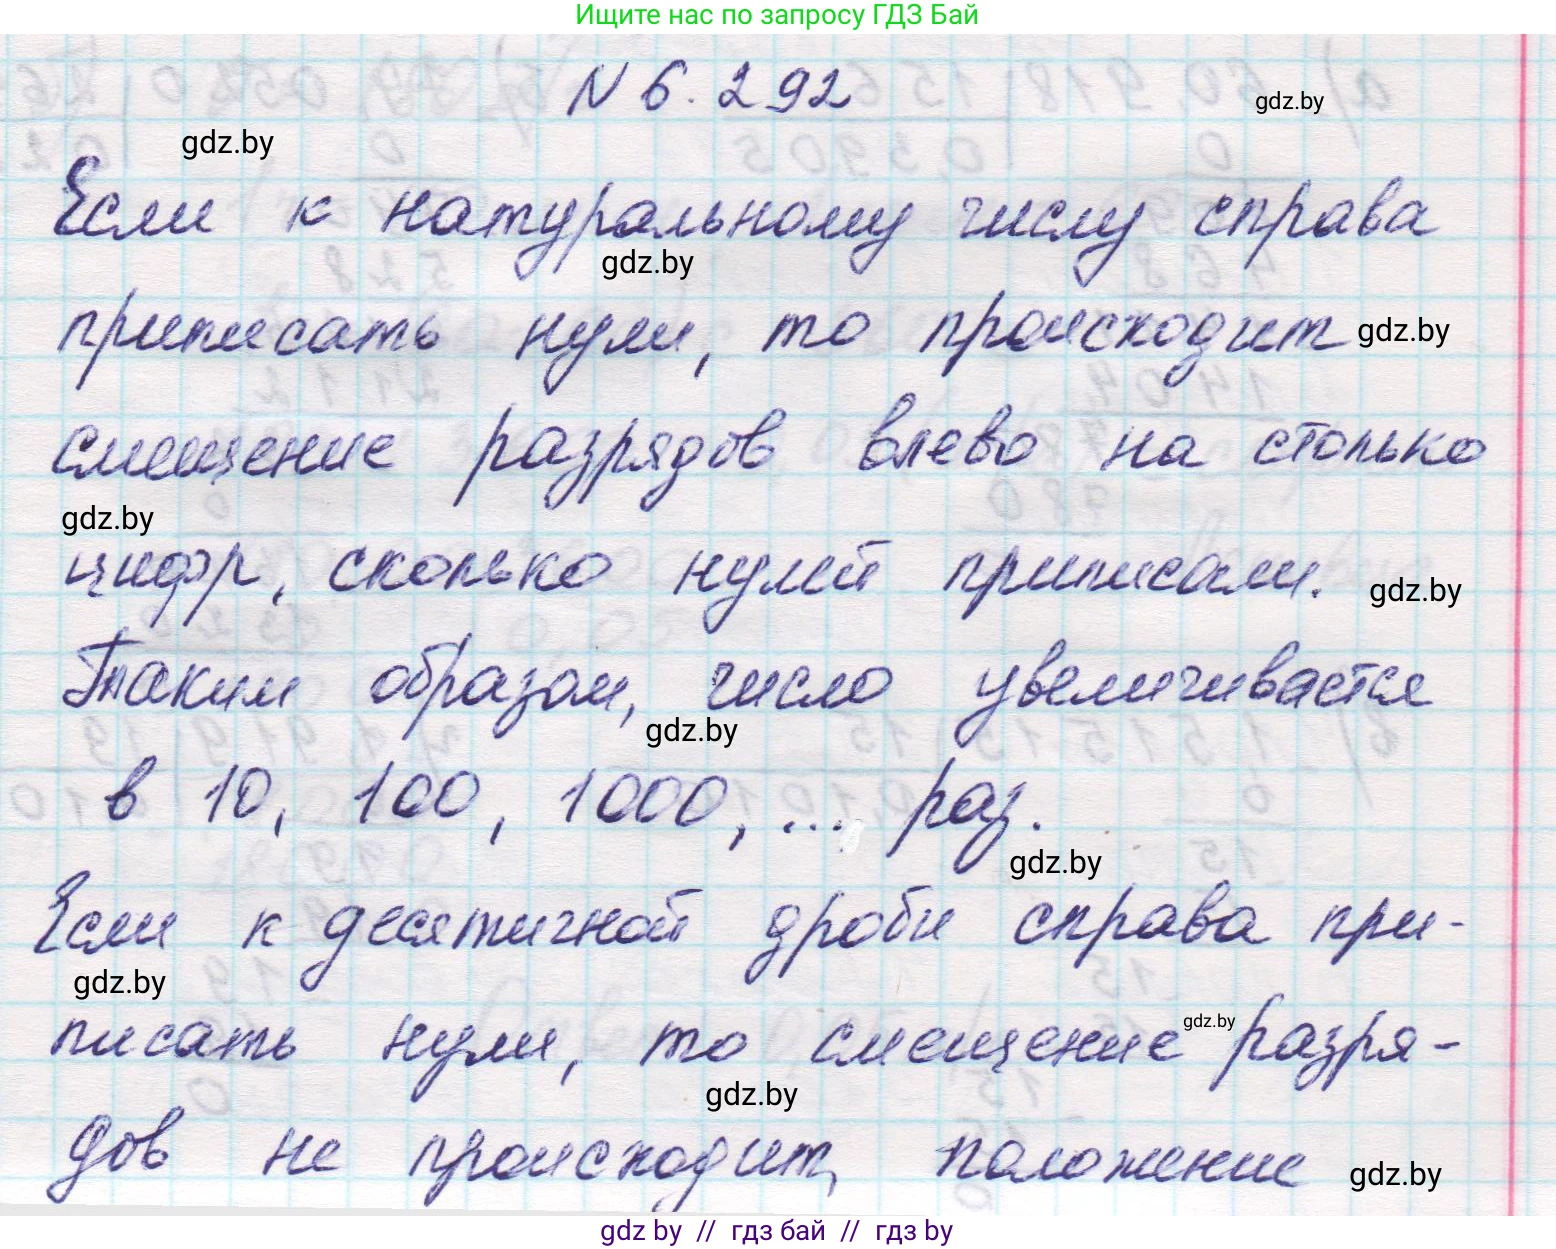 Ищите нас по запросу ГДЗ Бай
N 6.292
gdz.by
gdz.by
Если к натуральному числу справа
gdz.by
приписать нули, то происходит
gdz.by
смещение разрядов влево на столько
gdz.by
цифр, сколько нулей приписали.
gdz.by
Таким образом, число увеличивается
gdz.by
в 10, 100, 1000, ... раз.
gdz.by
Если к десятичной дроби справа при-
gdz.by
писать нули, то смещение разря-
gdz.by
gdz.by
дов не происходит, положение
gdz.by
gdz.by // гдз бай // гдз by